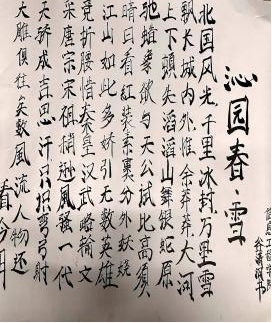 沁园春·雪
北国风光千里冰封万里雪
飘长城内外惟余莽莽大河
上下頓失滔滔山舞银蛇原
驰蜡象欲与天公试比高须
晴日看红装素裹分外妖娆
江山如此多娇引无数英雄
竞折腰惜秦皇汉武略输文
采唐宗宋祖稍逊風骚一代
天骄成吉思汗只识弯弓射
大雕俱往矣数風流人物还
看今朝
信息工程学院